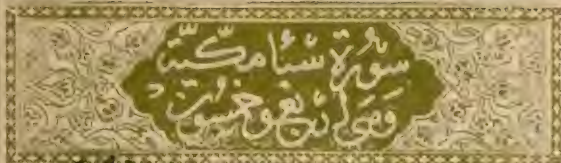 سورة سبا مكية
وهي أربع وخمسون